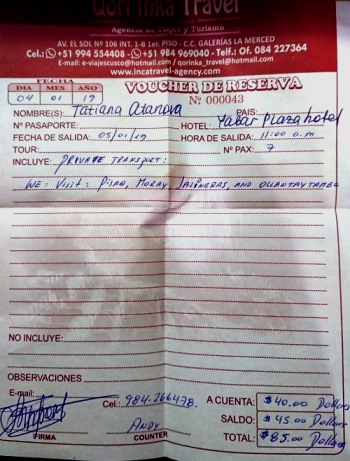 Qori Inka Travel
Agencia de Viajes y Turismo
AV. EL SOL Nº 106 INT. 1-B 1er. PISO - C.C. GALERÍAS LA MERCED
Cel.: +51 994 554408 - +51 984 969040 - Telf.: Of. 084 227364
E-mail: e-viajescusco@hotmail.com / qorinka_travel@hotmail.com
www.incatravel-agency.com
FECHA
DIA MES AÑO
04 01 19
VOUCHER DE RESERVA
Nº 000043
NOMBRE(S): Tatiana Atanova PAIS:
Nº PASAPORTE: HOTEL: Yabar Plaza hotel
FECHA DE SALIDA: 05/01/19 HORA DE SALIDA: 11:00 a.m
TOUR: Nº PAX: 7
INCLUYE: PRIVATE TRANSPORT:
WE: Visit: Pisaq, MORAY, SALINERAS, AND OLLANTAYTAMBO
NO INCLUYE:
OBSERVACIONES
E-mail:
Cel.: 984-266478.
A CUENTA: $40.00 Dollars
SALDO: $45.00 Dollars
TOTAL: $85.00 Dollars
FIRMA
ANDY
COUNTER